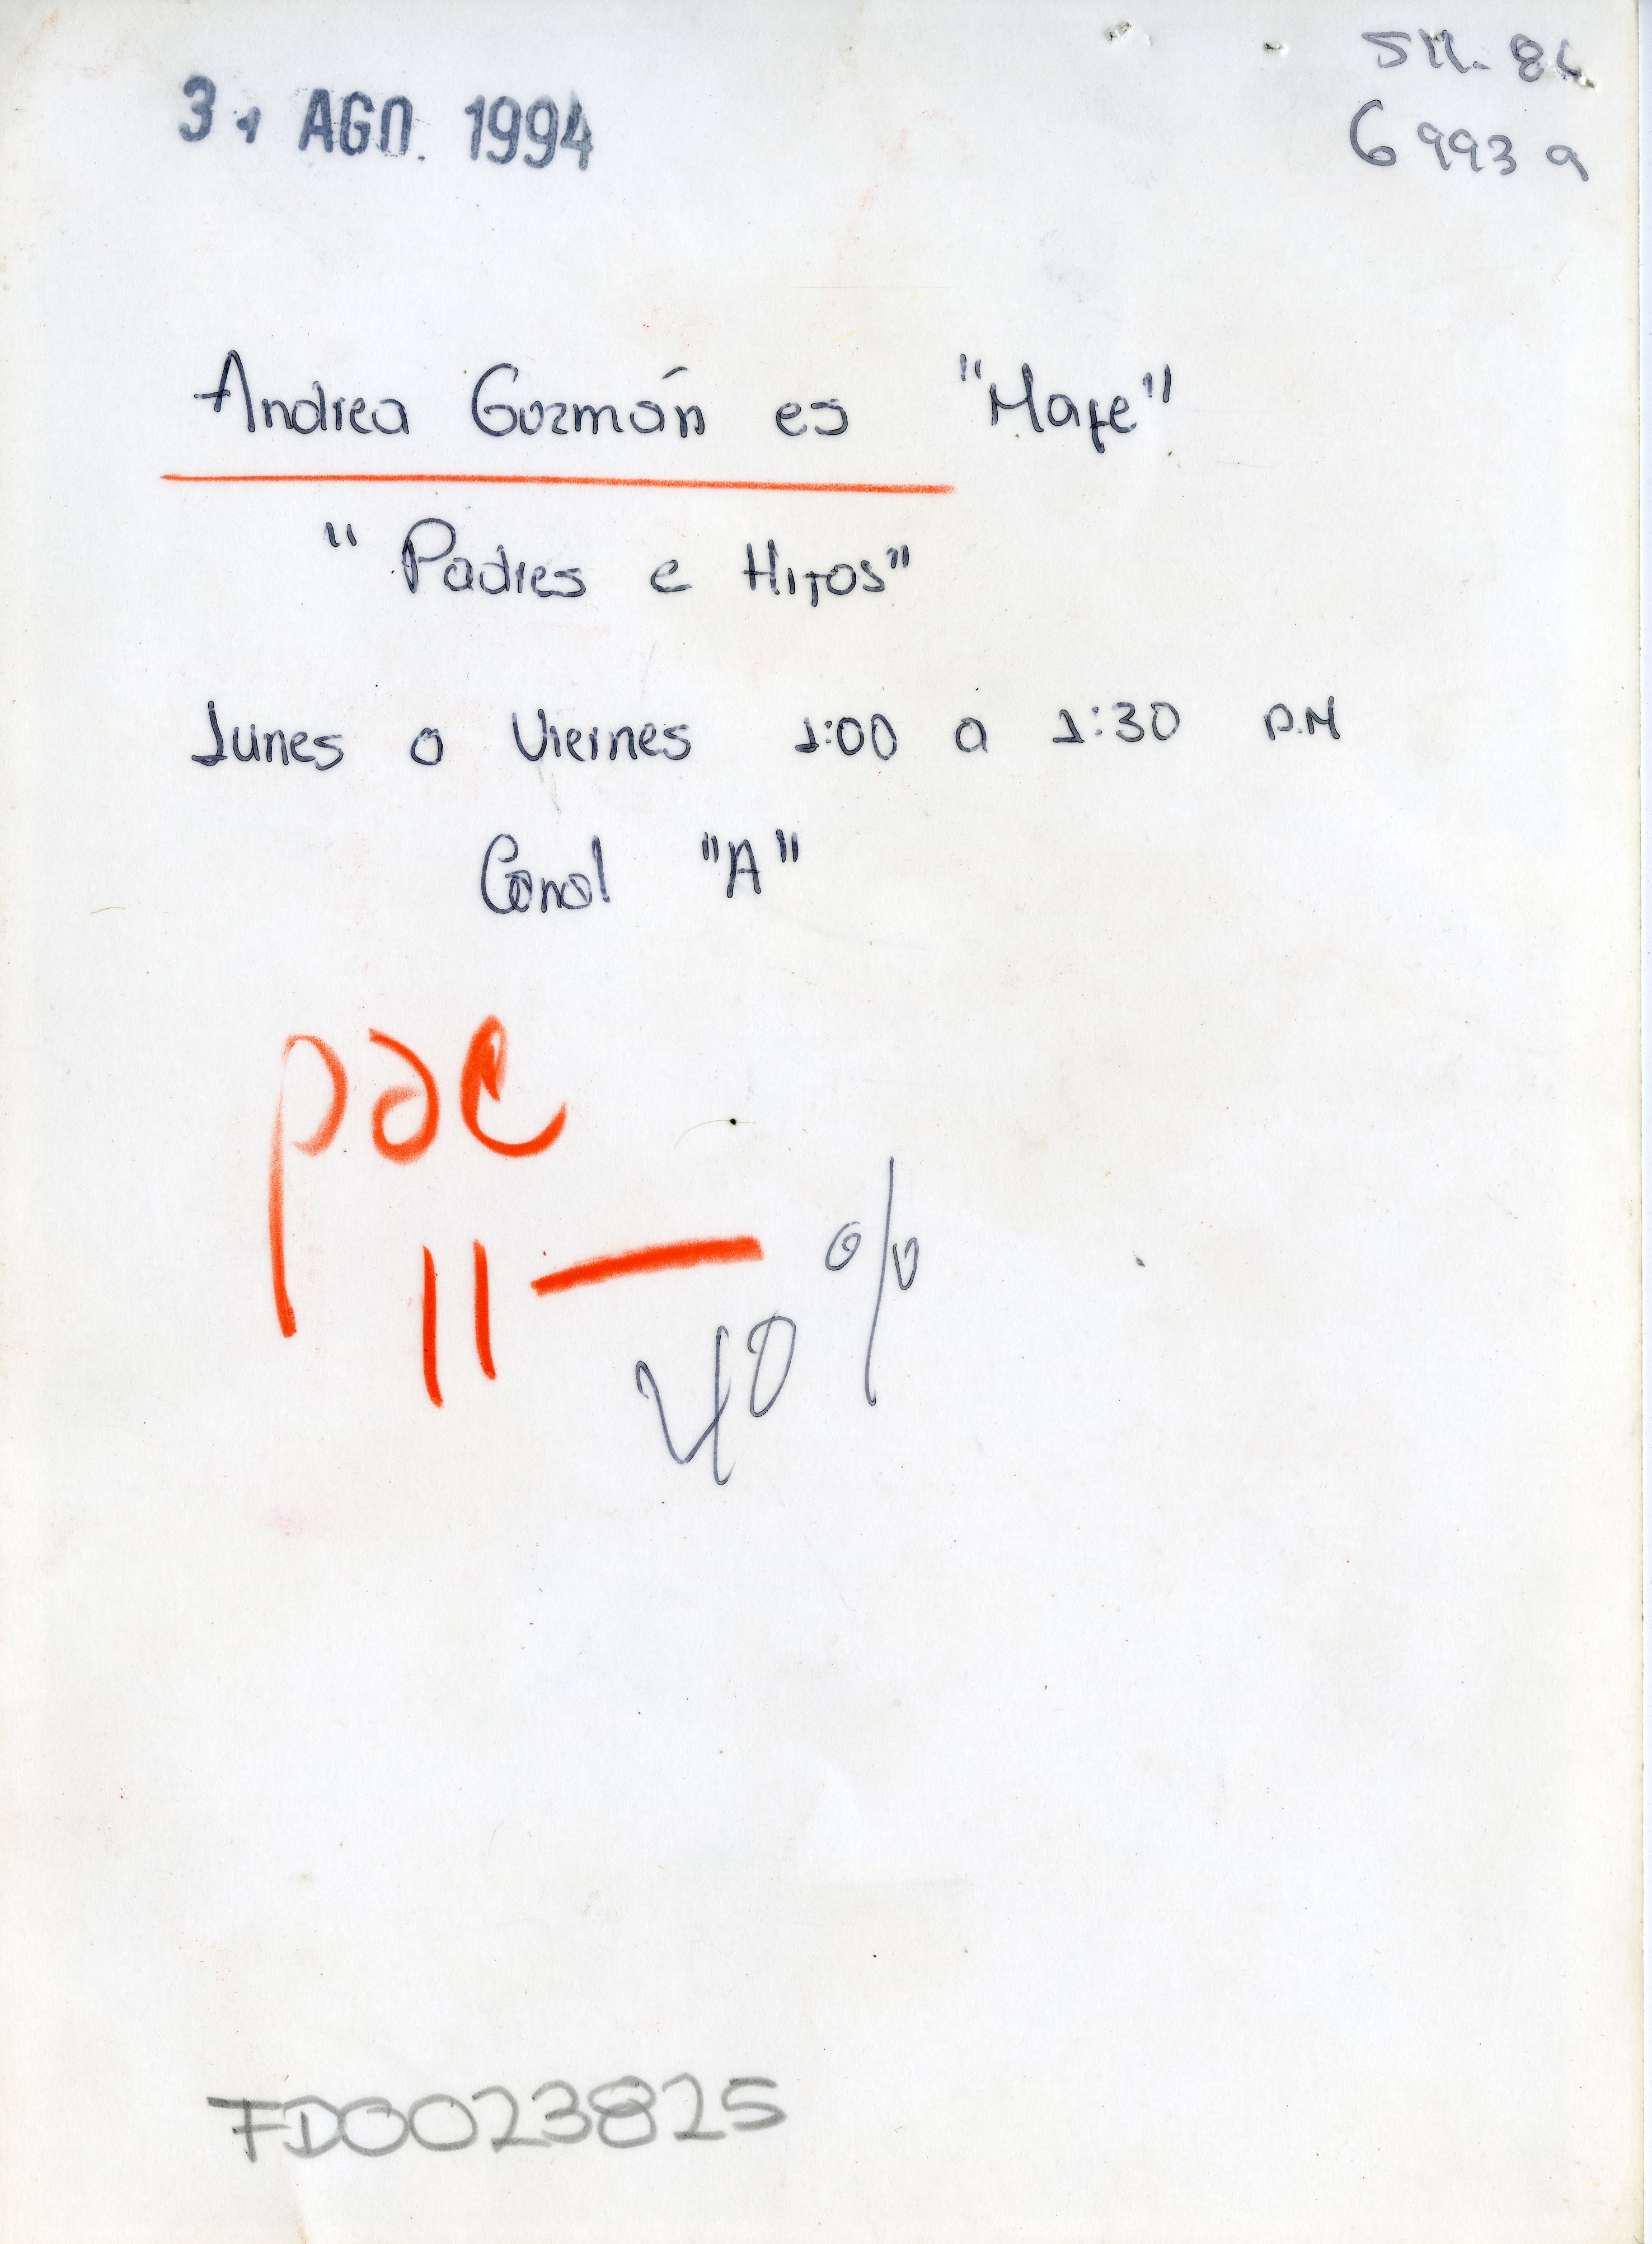 31 AGO. 1994
6993a
Andrea Guzmán es "Mafe"
"Padres e Hijos"
Lunes a Viernes 1:00 a 1:30 P.M
Canal "A"
pae
11 —
40 %
FD0023825